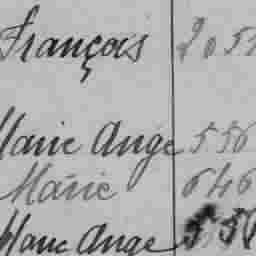 François 205
Marie Ange 556
Marie 646
Marie Ange 556